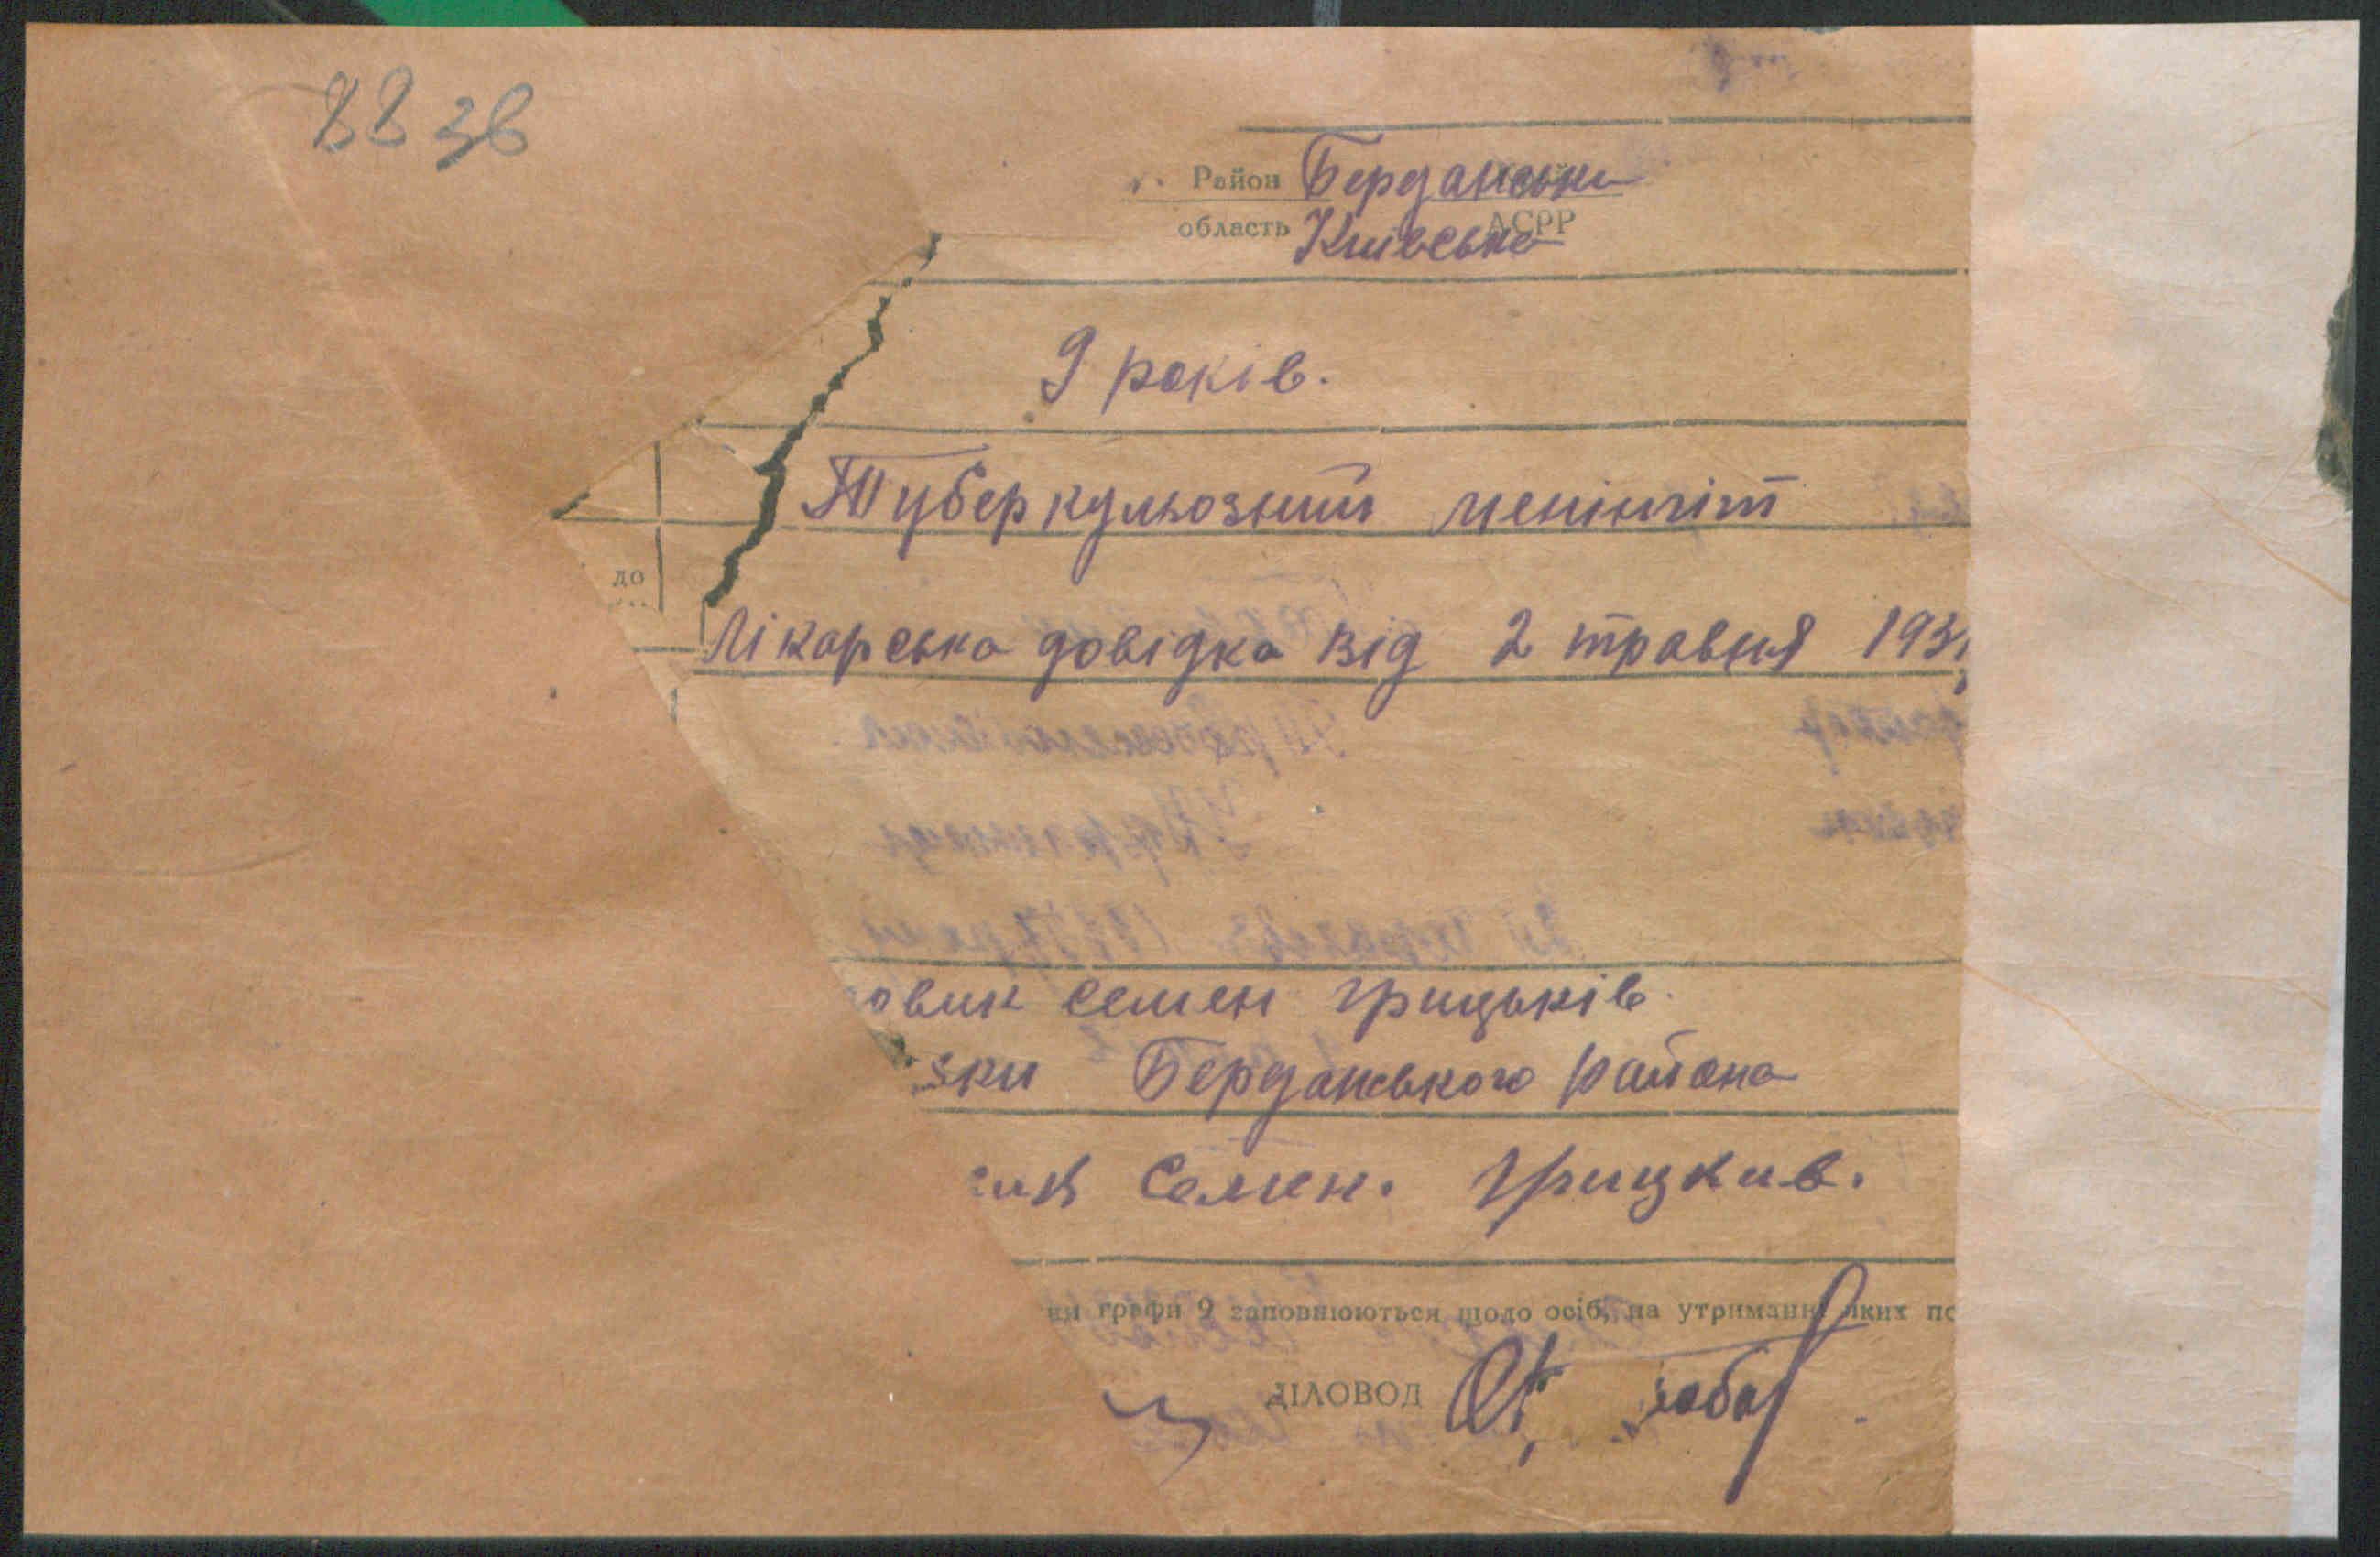 88 зв
Район Берданськи
область Київсько АСРР
9 років.
Туберкульозний менінгіт
до
Лікарська довідка від 2 травня 193
овик Семен Грицьків.
зки Берданського района
ик Семен. Грицкив.
ки графи 9 заповнюються щодо осіб, на утриманні яких по
ДІЛОВОД